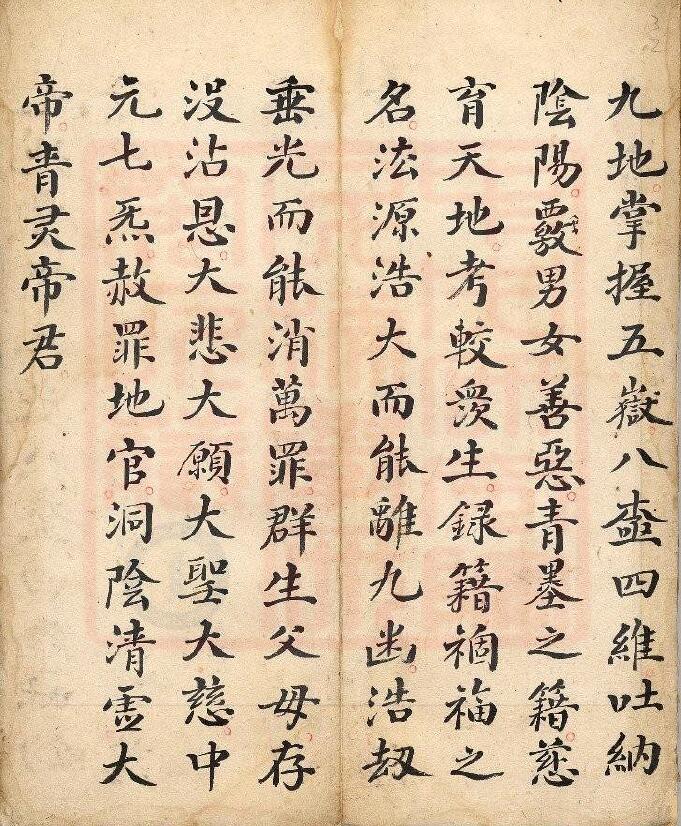 九地掌握五嶽八柱四維吐納
陰陽覈男女善惡青墨之籍慈
育天地考較眾生錄籍禍福之
名法源浩大而能離九幽浩劫
垂光而能消萬罪群生父母存
沒沾恩大悲大願大聖大慈中
元七炁赦罪地官洞陰清虛大
帝青灵帝君